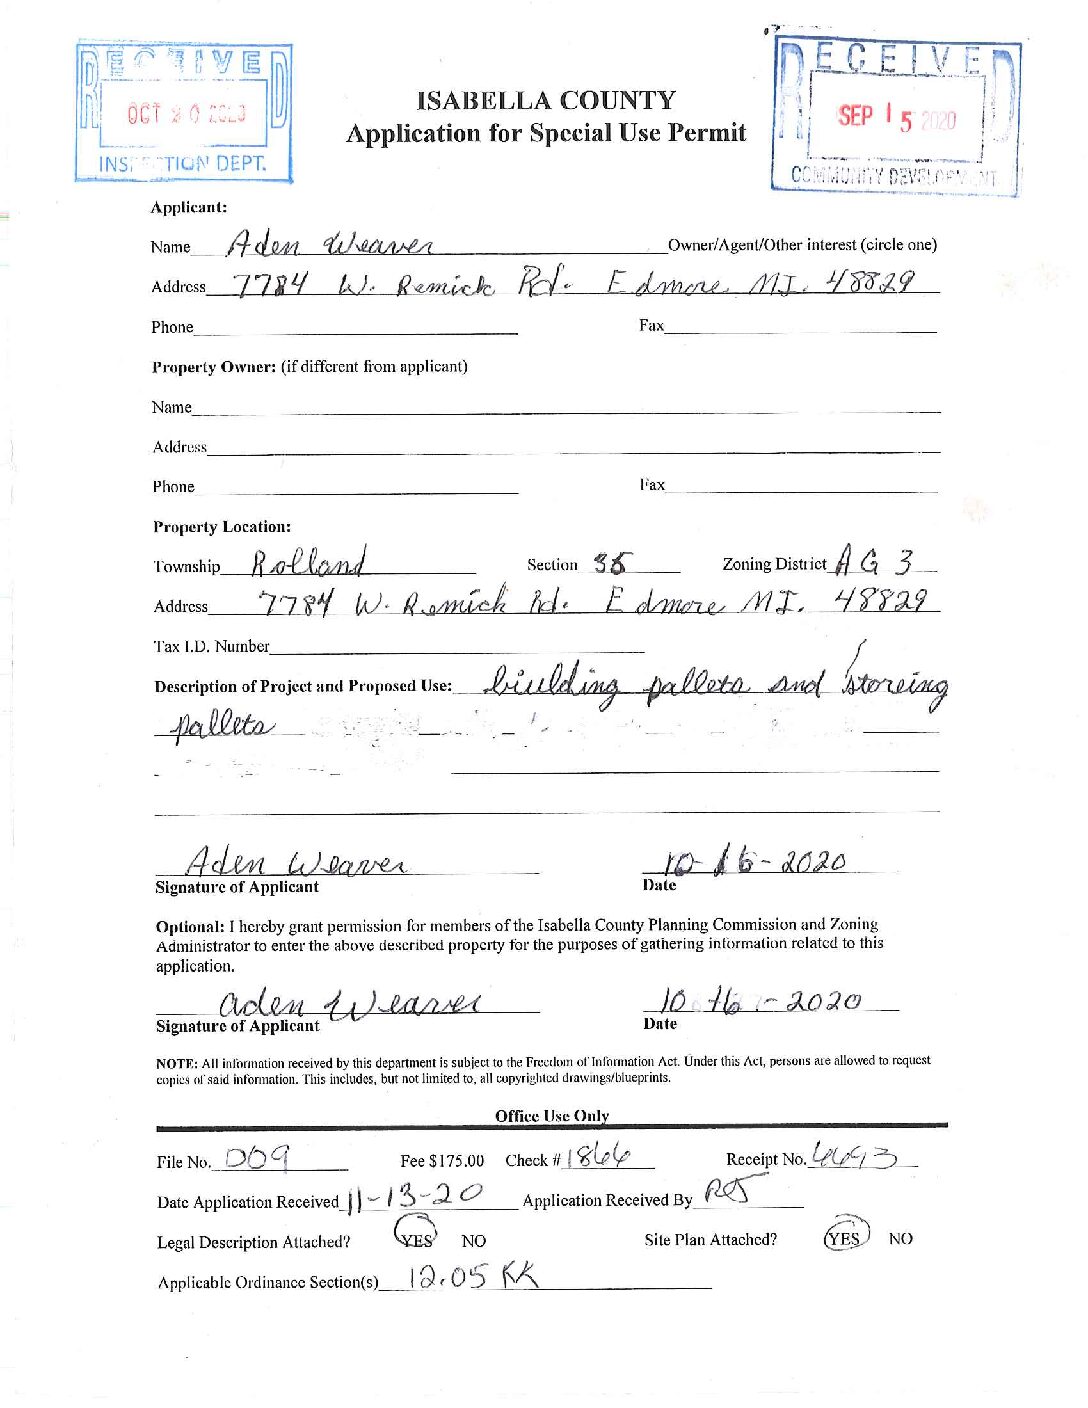 RECEIVED
OCT 20
DEPT.
RECEIVED
SEP 15 2020
COMMUNITY DEVELOPMENT
ISABELLA COUNTY
Application for Special Use Permit
Applicant:
Name Aden Weaver Owner/Agent/Other interest (circle one)
Address 7784 W. Remick Rd. Edmore MI. 48829
Phone Fax
Property Owner: (if different from applicant)
Name
Address
Phone Fax
Property Location:
Township Rolland Section 35 Zoning District AG 3
Address 7784 W. Remick Rd. Edmore MI. 48829
Tax I.D. Number
Description of Project and Proposed Use: biulding pallets and storeing
pallets
Aden Weaver 10-16-2020
Signature of Applicant Date
Optional: I hereby grant permission for members of the Isabella County Planning Commission and Zoning
Administrator to enter the above described property for the purposes of gathering information related to this
application.
aden Weaver 10-16-2020
Signature of Applicant Date
NOTE: All information received by this department is subject to the Freedom of Information Act. Under this Act, persons are allowed to request
copies of said information. This includes, but not limited to, all copyrighted drawings/blueprints.
Office Use Only
File No. 009 Fee $175.00 Check # 1866 Receipt No. 6693
Date Application Received 11-13-20 Application Received By
Legal Description Attached? YES NO Site Plan Attached? YES NO
Applicable Ordinance Section(s) 12.05 KK